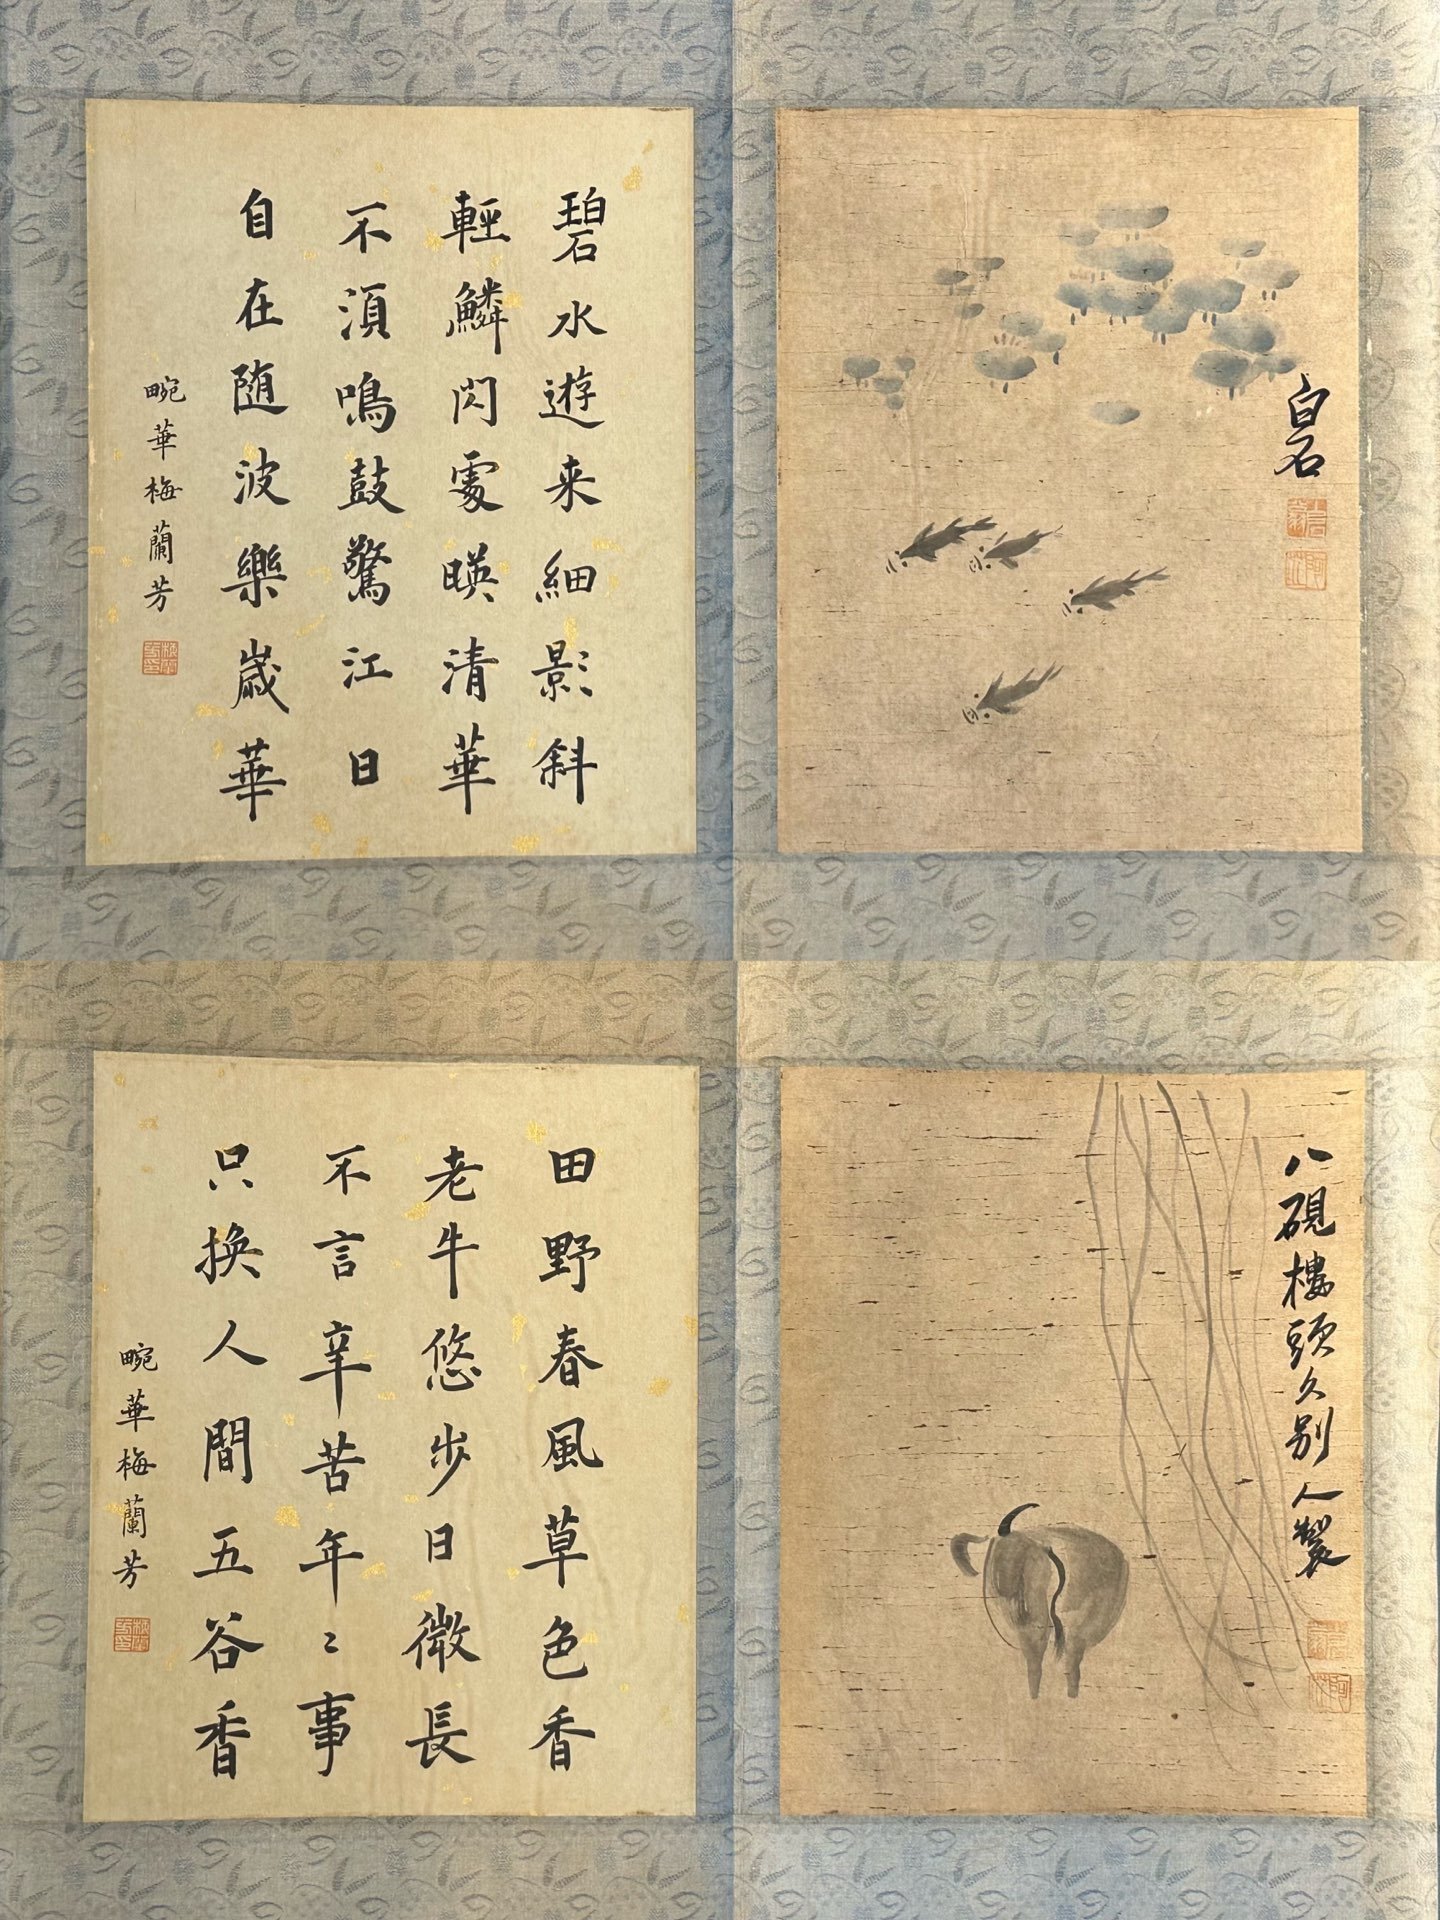 碧水遊来細影斜
輕鱗閃處暎清華
不須鳴鼓驚江日
自在随波樂歲華
畹華梅蘭芳
白石
田野春風草色香
老牛悠步日微長
不言辛苦年〻事
只换人間五谷香
畹華梅蘭芳
八硯樓頭久别人製